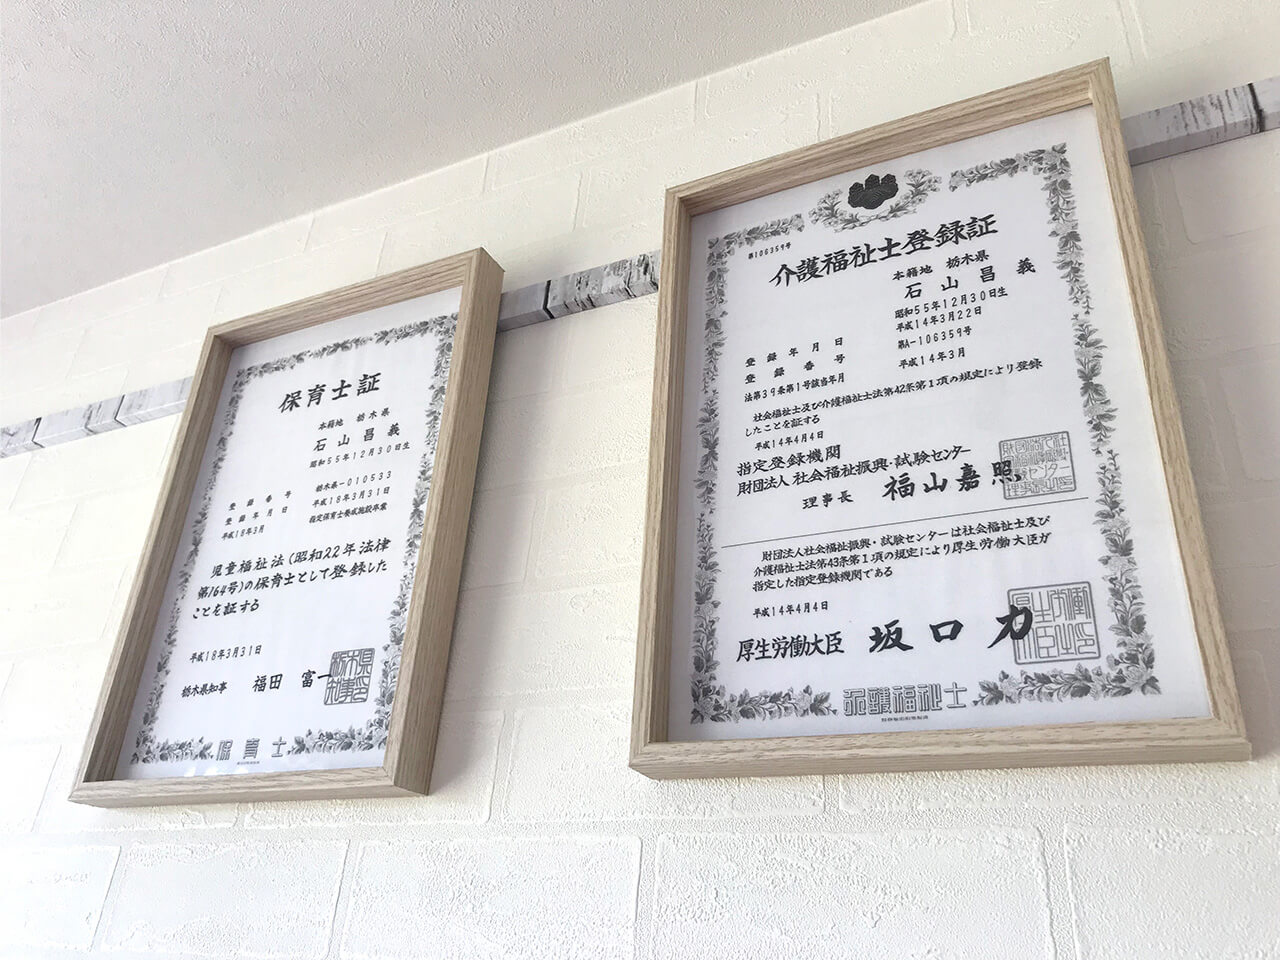 保育士証
本籍地 栃木県
石山昌義
昭和55年12月30日生
登録番号 栃木県-010533
登録年月日 平成18年3月31日
平成18年3月 指定保育士養成施設卒業
児童福祉法(昭和22年法律
第164号)の保育士として登録した
ことを証する
平成18年3月31日
栃木県知事 福田富一
栃木県知事印
保育士
第106359号
介護福祉士登録証
本籍地 栃木県
石山昌義
昭和55年12月30日生
登録年月日 平成14年3月22日
登録番号 第A-106359号
法第39条第1号該当年月 平成14年3月
社会福祉士及び介護福祉士法第42条第1項の規定により登録
したことを証する
平成14年4月4日
指定登録機関
財団法人 社会福祉振興・試験センター
理事長 福山嘉照
財団法人社会福祉振興・試験センターは社会福祉士及び
介護福祉士法第43条第1項の規定により厚生労働大臣が
指定した指定登録機関である
平成14年4月4日
厚生労働大臣 坂口力
介護福祉士